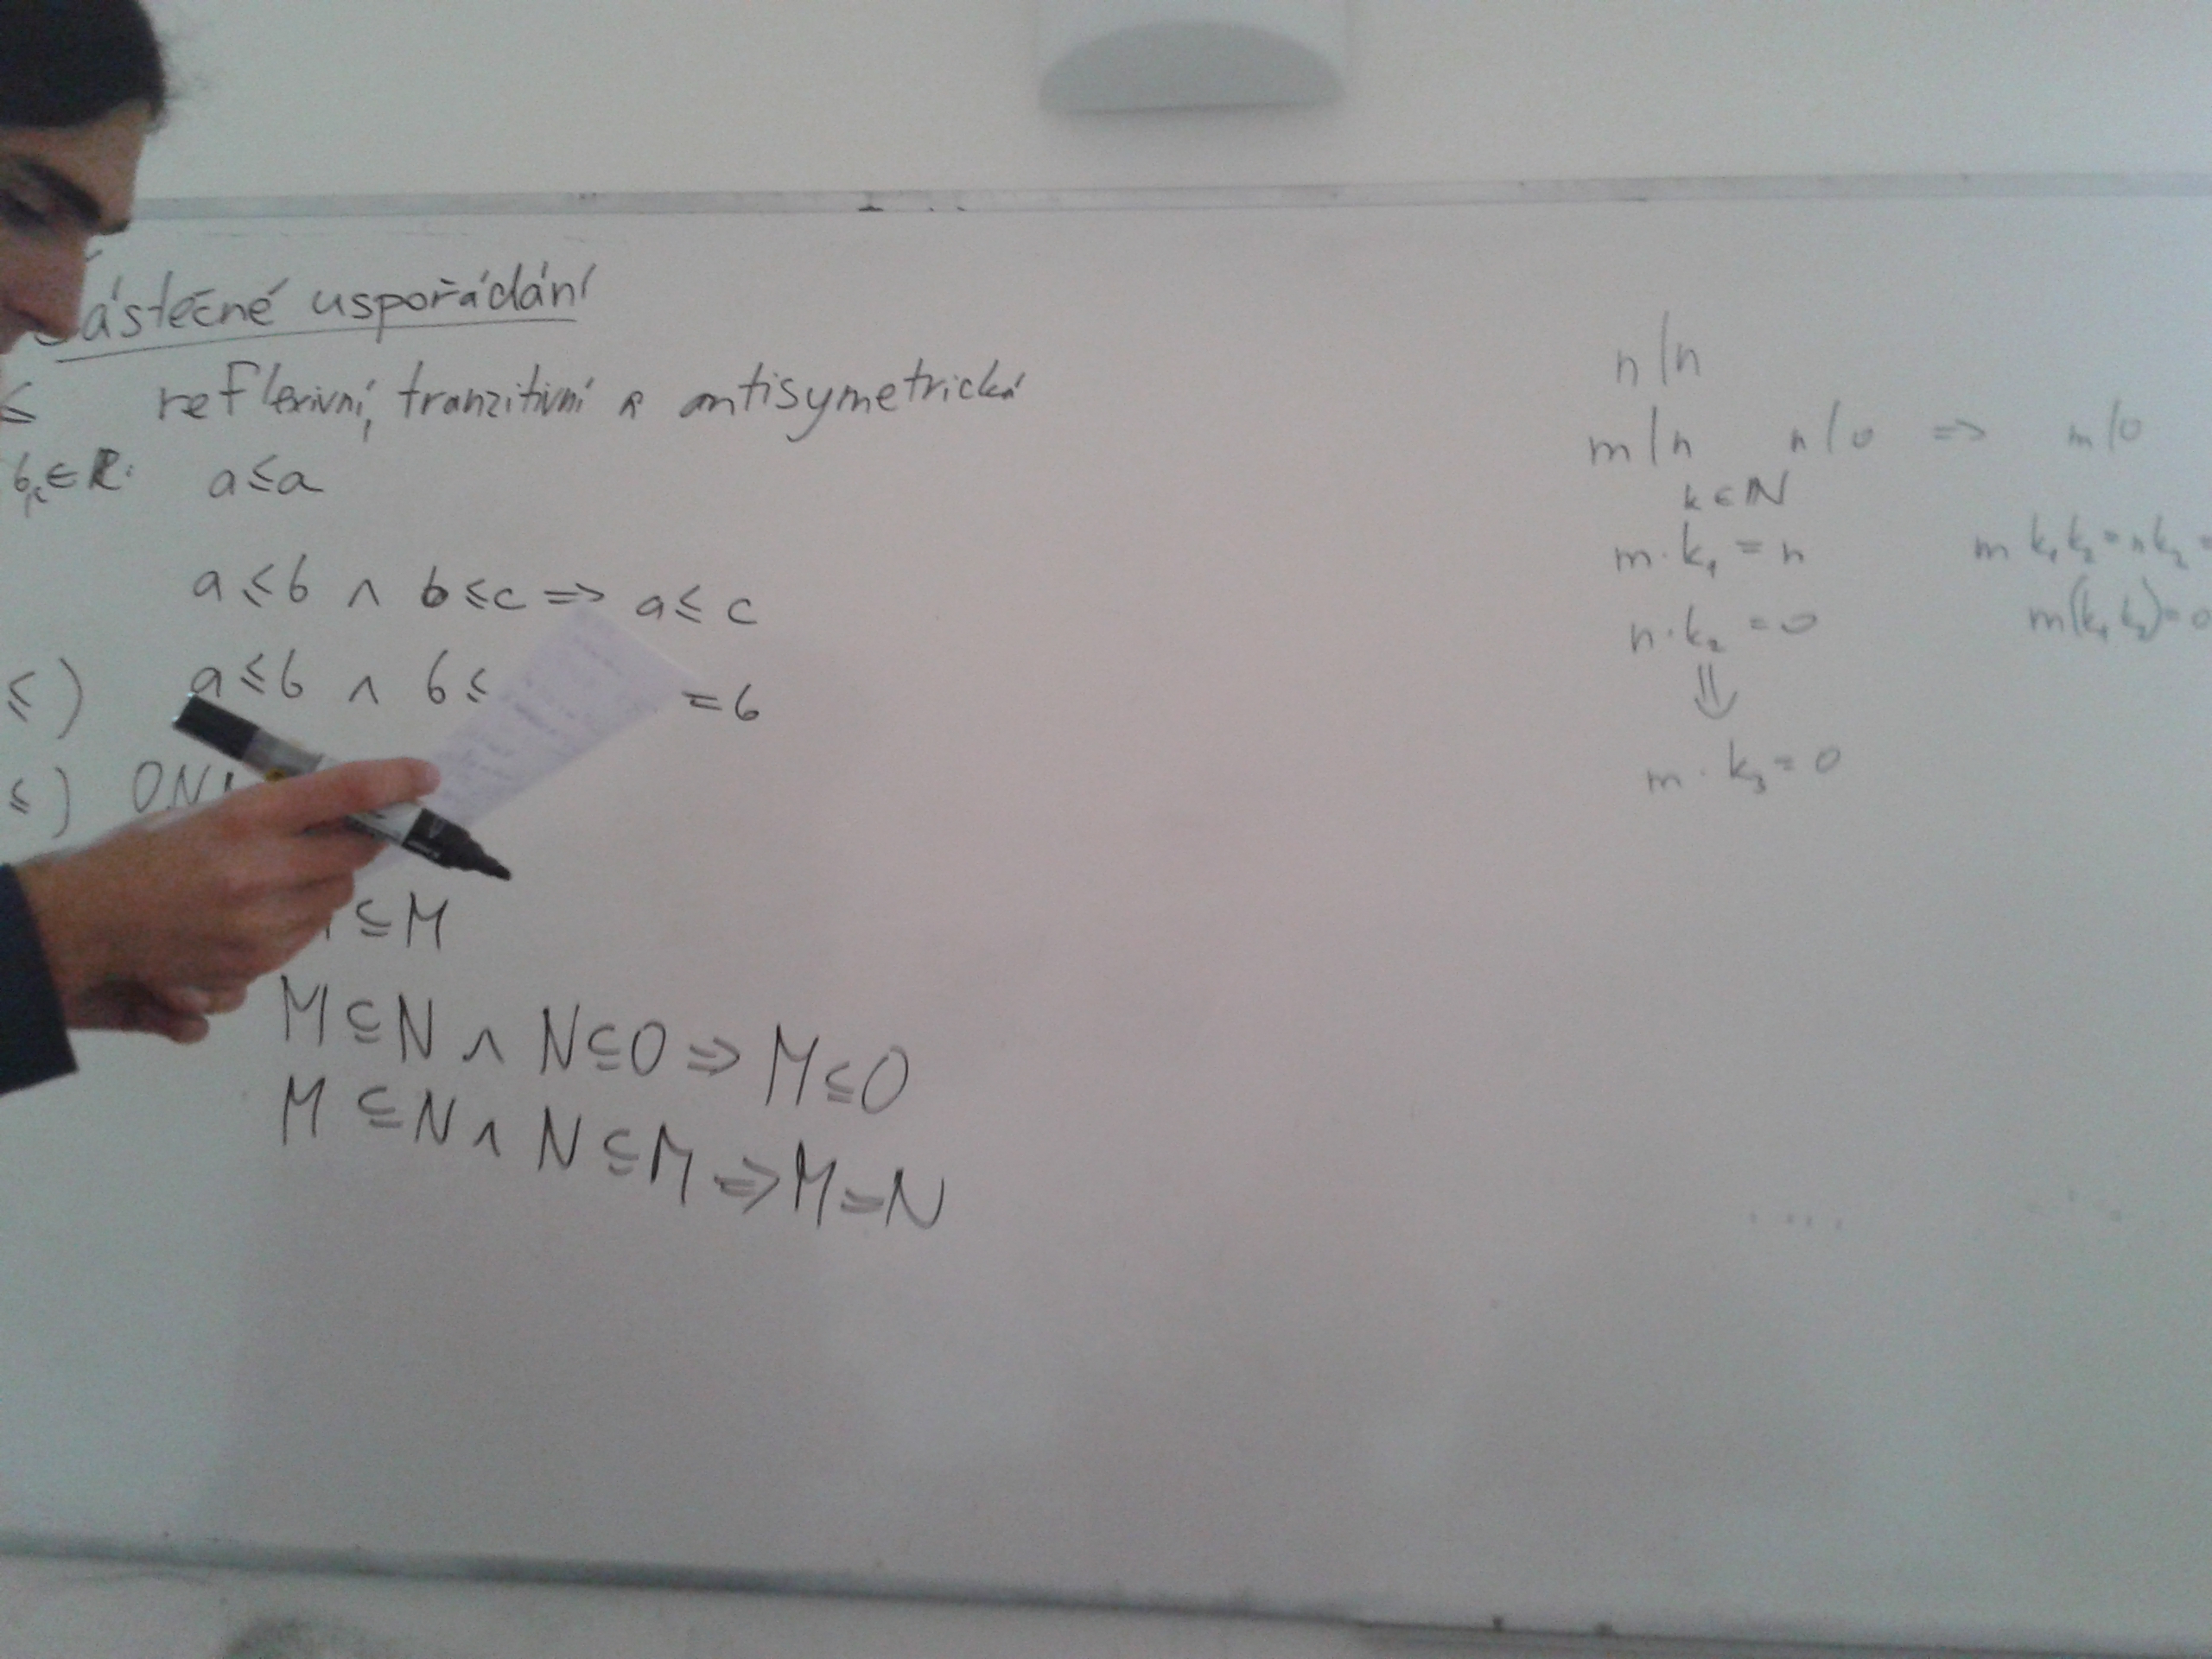 částečné uspořádání
≤ reflexivní, tranzitivní a antisymetrická
b, c ∈ R: a ≤ a
a ≤ b ∧ b ≤ c => a ≤ c
≤) a ≤ b ∧ b ≤ = b
≤)
⊆ M
M ⊆ N ∧ N ⊆ O => M ⊆ O
M ⊆ N ∧ N ⊆ M => M = N
n | n
m | n n | o => m | o
k ∈ N
m · k₁ = n m k₁ k₂ = n k₂ =
n · k₂ = o m(k₁ k₂) = o
⇓
m · k₃ = o